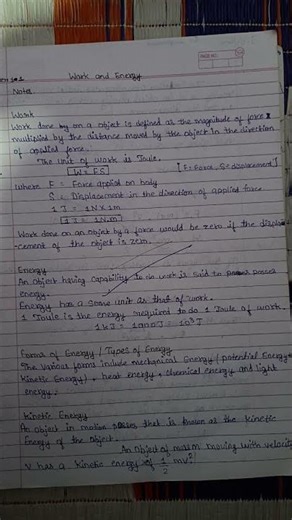 Work and Energy
Notes
Work
Work done by on a object is defined as the magnitude of force
multiplied by the distance moved by the object in the direction
of applied force.
The unit of work is Joule.
[W = FS] [F = Force, S = displacement]
Where F = Force applied on body
S = Displacement in the direction of applied force
1 J = 1N X 1m
[1 J = 1N.m]
Work done on an object by a force would be zero if the displa-
-cement of the object is zero.
Energy
An object having capability to do work is said to
energy.
Energy has a same unit as that of work.
1 Joule is the energy required to do 1 Joule of work.
1KJ = 1000J = 10³J
Forms of Energy / Types of Energy
The various forms include mechanical Energy (potential Energy +
Kinetic Energy) + heat energy + chemical energy and light
energy.
Kinetic Energy
An object in motion that is known as the Kinetic
Energy of the object.
An object of mass m moving with velocity
v has a Kinetic energy of 1/2 mv².